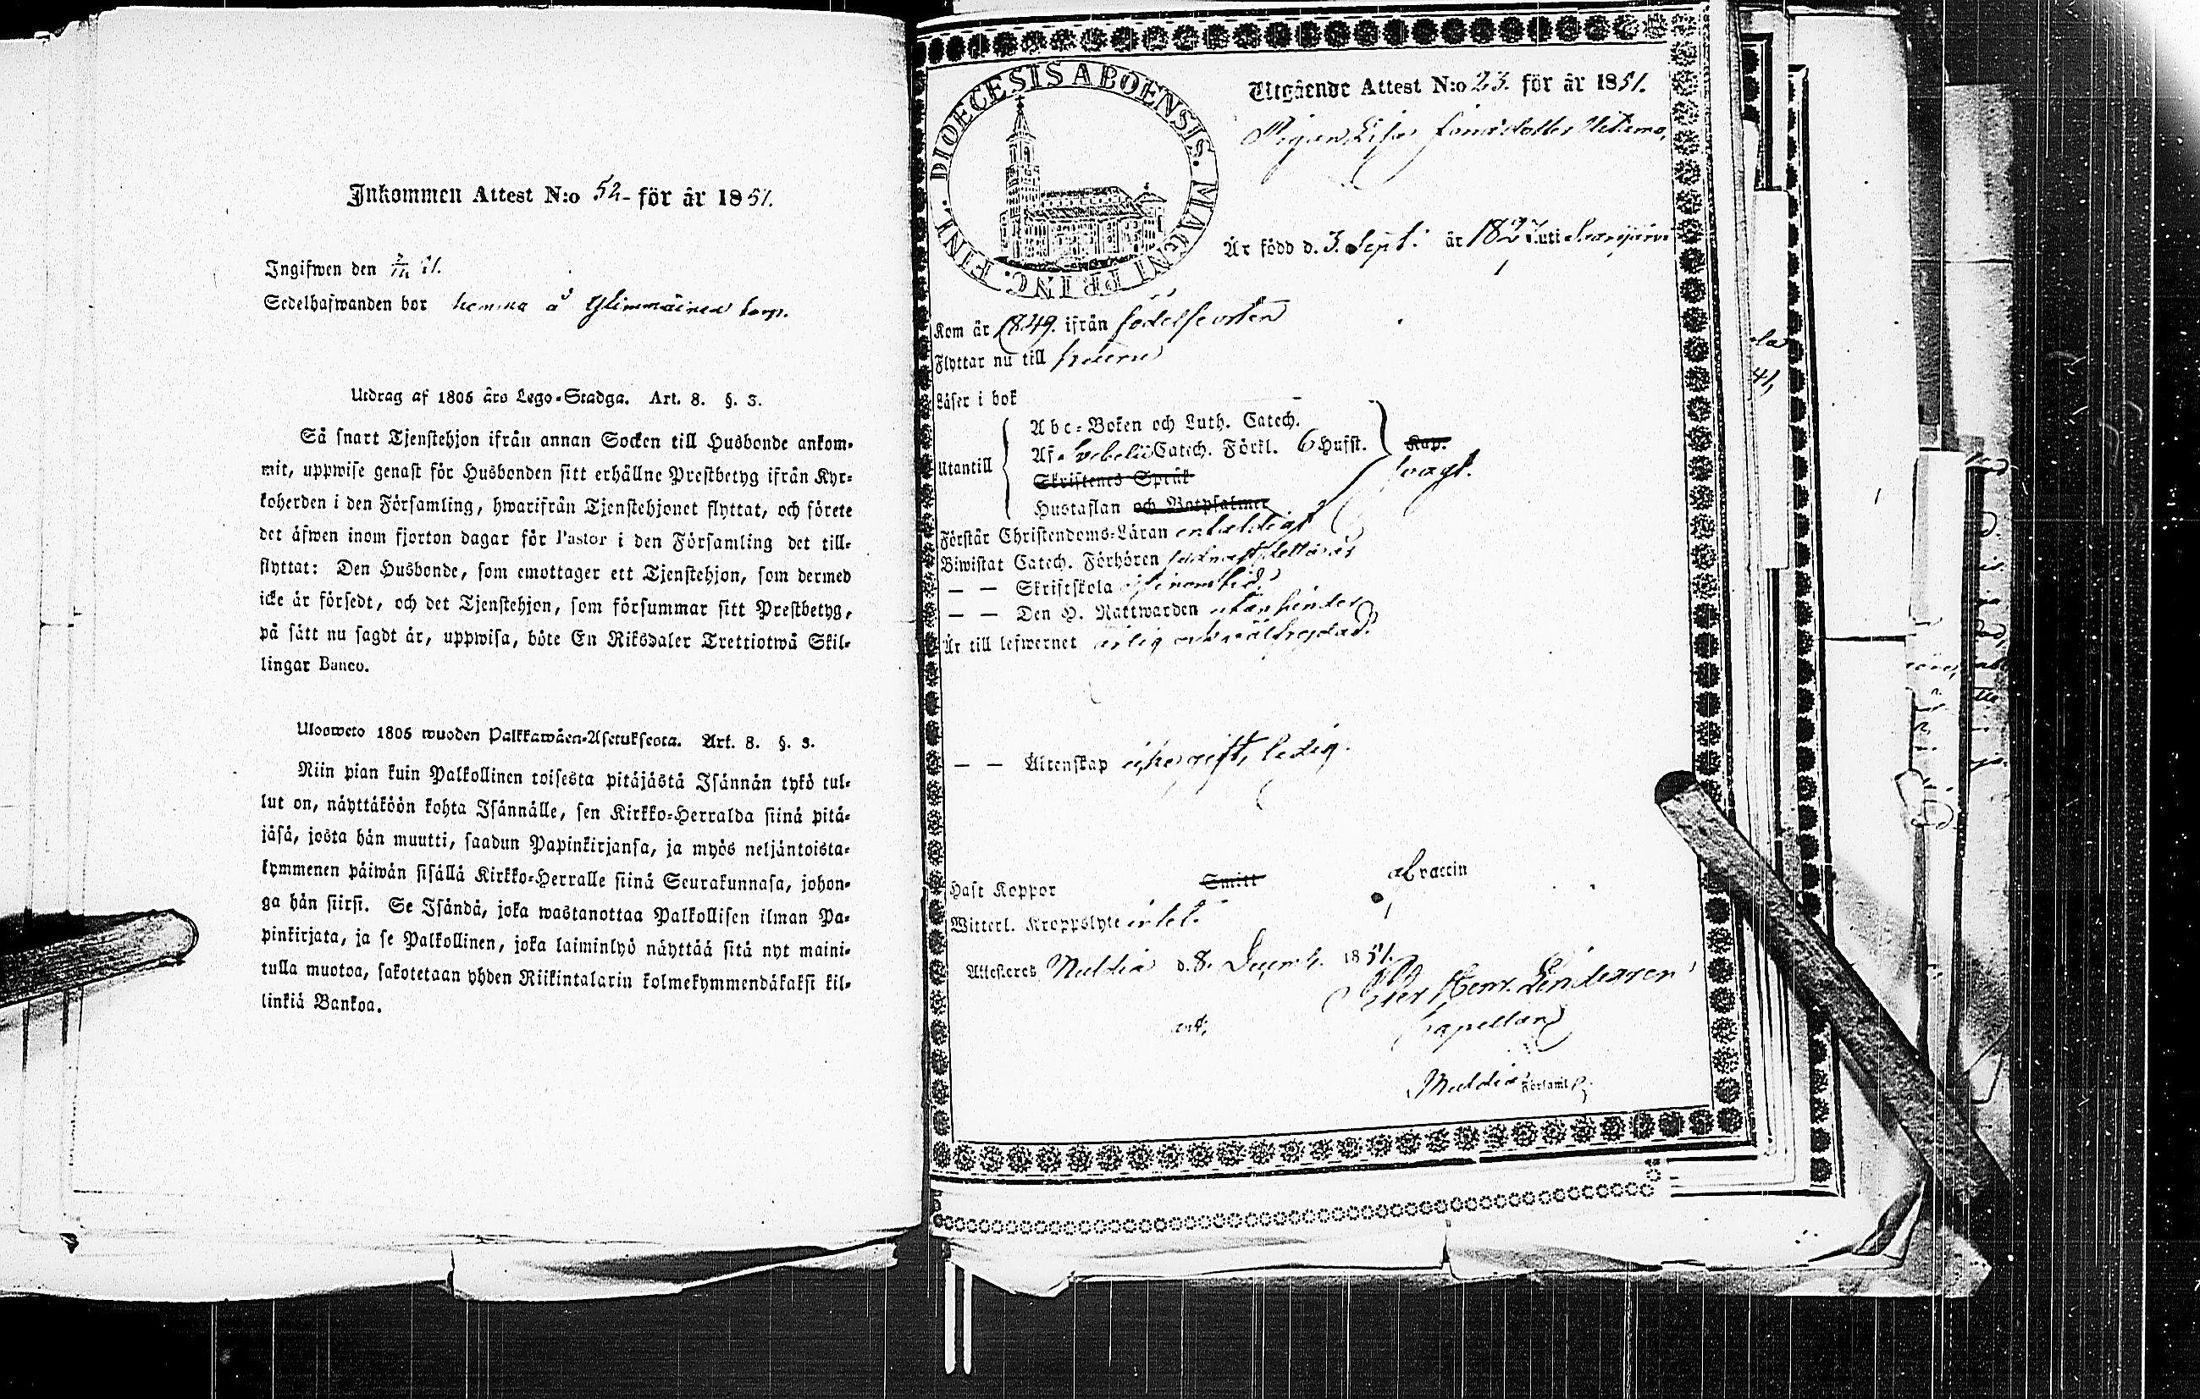 Inkommen Attest N:o 52 för år 1851.
Ingifwen den
Sedelhafwanden bor hemma å Glimmäinen torp.
Utdrag af 1805 års Lego-Stadga. Art. 8. §. 3.
Så snart Tjenstehjon ifrån annan Socken till Husbonde ankom-
mit, uppwise genast för Husbonden sitt erhållne Prestbetyg ifrån Kyr-
koherden i den Församling, hwarifrån Tjenstehjonet flyttat, och förete
det äfwen inom fjorton dagar för Pastor i den Församling det till-
flyttat: Den Husbonde, som emottager ett Tjenstehjon, som dermed
icke är försedt, och det Tjenstehjon, som försummar sitt Prestbetyg,
på sätt nu sagdt är, uppwisa, böte En Riksdaler Trettiotwå Skil-
lingar Banco.
Ulosweto 1805 wuoden Palkkawäen-Asetuksesta. Art. 8. §. 3.
Niin pian kuin Palkollinen toisesta pitäjästä Isännän tykö tul-
lut on, näyttäköön kohta Isännälle, sen Kirkko-Herralda siinä pitä-
jäsä, josta hän muutti, saadun Papinkirjansa, ja myös neljäntoista-
kymmenen päiwän sisällä Kirkko-Herralle siinä Seurakunnasa, johon-
ga hän siirsi. Se Isändä, joka wastanottaa Palkollisen ilman Pa-
pinkirjata, ja se Palkollinen, joka laiminlyö näyttää sitä nyt maini-
tulla muotoa, sakotetaan yhden Riikintalarin kolmekymmendäkaksi kil-
linkiä Bankoa.
DIOECESIS ABOENSIS. MAGNI PRINC. FINL.
Utgående Attest N:o 23. för år 1851.
Pigan Lisa
Är född d. 3 Sept. år 1827 uti Saarijärvi
Kom år 1849. ifrån födelseorten
Flyttar nu till
Läser i bok
Utantill
Abc-Boken och Luth. Catech.
Af Svebelii Catech. Förkl. 6 Hufst.
Skriftenes Språk
Hustaflan och Botpsalmer
Kap.
svagt.
Förstår Christendoms-Läran enfaldigt
Biwistat Catech. Förhören
— — Skriftskola
— — Den H. Nattwarden utan hinder
Är till lefwernet ärlig och wälfrejdad.
— — Äktenskap ledig.
Haft Koppor Smitt Vaccin
Witterl. Kroppslyte intet.
Attesteras Muldia d. 8. Decemb. 1851.
Henr. Lindegren
Capellan
Muldia Förlaml